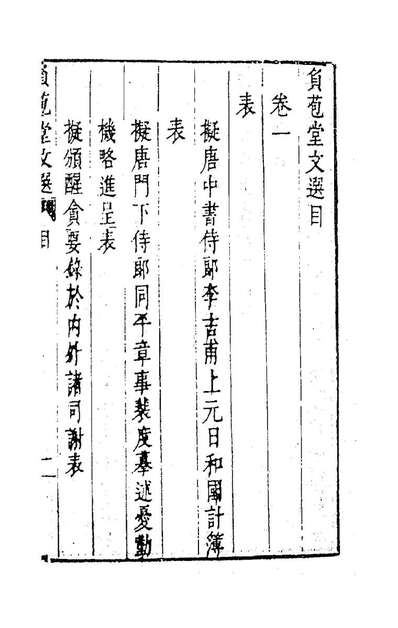 負苞堂文選目
卷一
表
擬唐中書侍郎李吉甫上元日和國計簿
表
擬唐門下侍郎同平章事裴度纂述憂勤
機略進呈表
擬頒醒貪要錄於內外諸司謝表
負苞堂文選 目 一